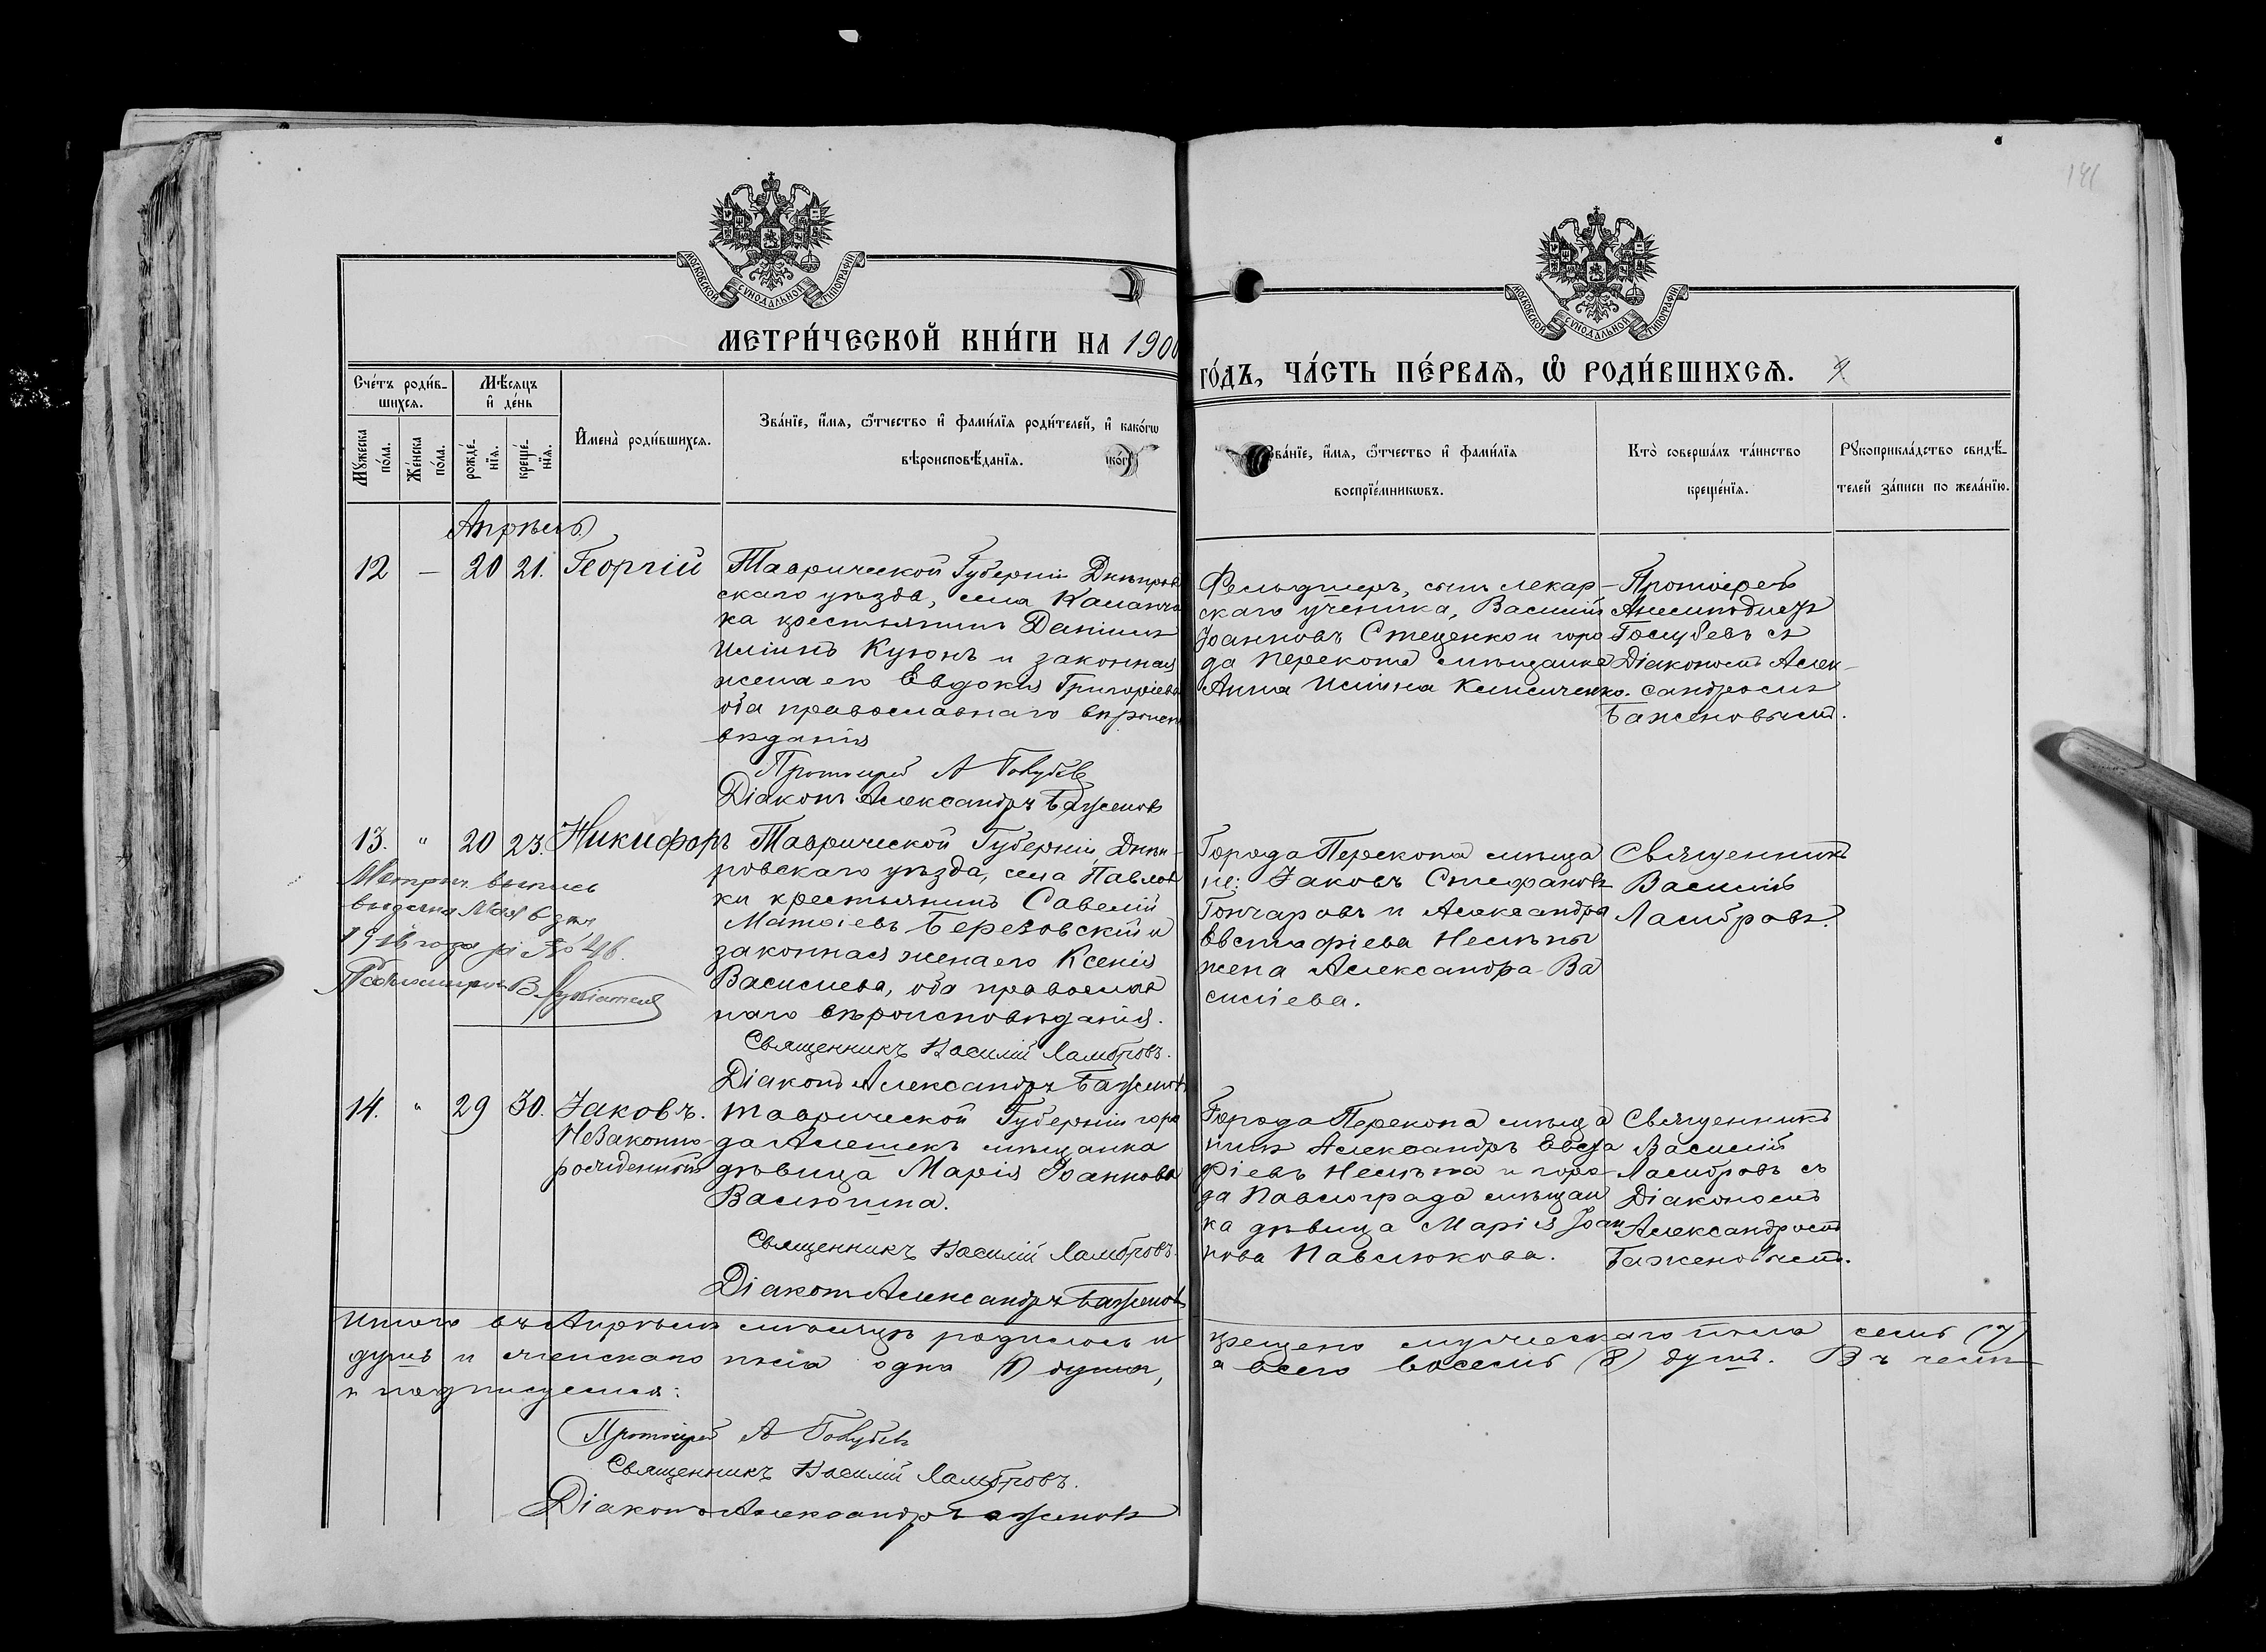 141
МОСКОВСКОЙ СѴНОДАЛЬНОЙ ТИПОГРАФІИ
МОСКОВСКОЙ СѴНОДАЛЬНОЙ ТИПОГРАФІИ
МЕТРИ́ЧЕСКОЙ КНИ́ГИ НА 1900
ГО́ДЪ, ЧА́СТЬ ПЕ́РВАѦ, Ѽ РОДИ́ВШИХСѦ.
Сче́тъ роди́в-
шихсѧ.
Мꙋ́жеска по́ла.
Же́нска по́ла.
Мѣ́сѧцъ
и҆ де́нь
рожде́-нїѧ.
креще́-нїѧ.
И҆мена̀ роди́вшихсѧ.
Зва́нїе, и҆́мѧ, ѻ҆́тчество и҆ фами́лїѧ роди́телей, и҆ како́гѡ
вѣроисповѣ́данїѧ.
Зва́нїе, и҆́мѧ, ѻ҆́тчество и҆ фами́лїѧ
воспрїе́мникѡвъ.
Кто̀ соверша́лъ та́инство
креще́нїѧ.
Рꙋкоприкла́дство свидѣ́-
телей за́писи по жела́нїю.
Апрѣль
12 — 20 21. Георгій
Таврической Губерніи Днѣпров
скаго уѣзда, села Каланча
ка крестьянинъ Даніилъ
Иліинъ Куюнъ и законная
жена его Евдокія Григоріева
оба православнаго вѣроиспо
вѣданія
Протоіерей А Голубевъ
Діаконъ Александръ Баженовъ
Фельдшеръ, сынъ лекар-
скаго ученика, Василій
Іоанновъ Стеценко и горо
да Перекопа мѣщанка
Анна Иліина Клисиченко.
Протоіерей
Анемподистъ
Голубевъ съ
Діакономъ Алек-
сандромъ
Баженовымъ.
13. " 20 23. Никифоръ
Метрич. выпись
выдана Мая 6 дня
1916 года за № 46.
Таврической Губерніи, Днѣп-
ровскаго уѣзда, села Павлов
ки крестьянинъ Савелій
Матѳіевъ Березовскій и
законная жена его Ксенія
Василіева, оба православ
наго вѣроисповѣданія.
Священникъ Василій Ламбровъ.
Діаконъ Александръ Баженовъ
Города Перекопа мѣща
не: Іаковъ Стефановъ
Гончаровъ и Александра
Евстафіева Немѣты
жена Александра Ва
силіева.
Священникъ
Василій
Ламбровъ.
14. " 29 30. Іаковъ.
Незаконно-
рожденный
Таврической Губерніи горо
да Алешекъ мѣщанка
дѣвица Марія Іоаннова
Васюшина.
Священникъ Василій Ламбровъ.
Діаконъ Александръ Баженовъ
Города Перекопа мѣща
нинъ Александръ Евста
фіевъ Немѣта и горо-
да Павлограда мѣщан
ка дѣвица Марія Іоан
нова Павлюкова.
Священникъ
Василій
Ламбровъ съ
Діакономъ
Александромъ
Баженовымъ.
Итого въ Апрѣлѣ мѣсяцѣ родилось и крещено мужескаго пола семь (7)
душъ и женскаго пола одна (1) душа, а всего восемь (8) душъ. Въ чемъ
и подписуемся:
Протоіерей А Голубевъ
Священникъ Василій Ламбровъ.
Діаконъ Александръ Баженовъ